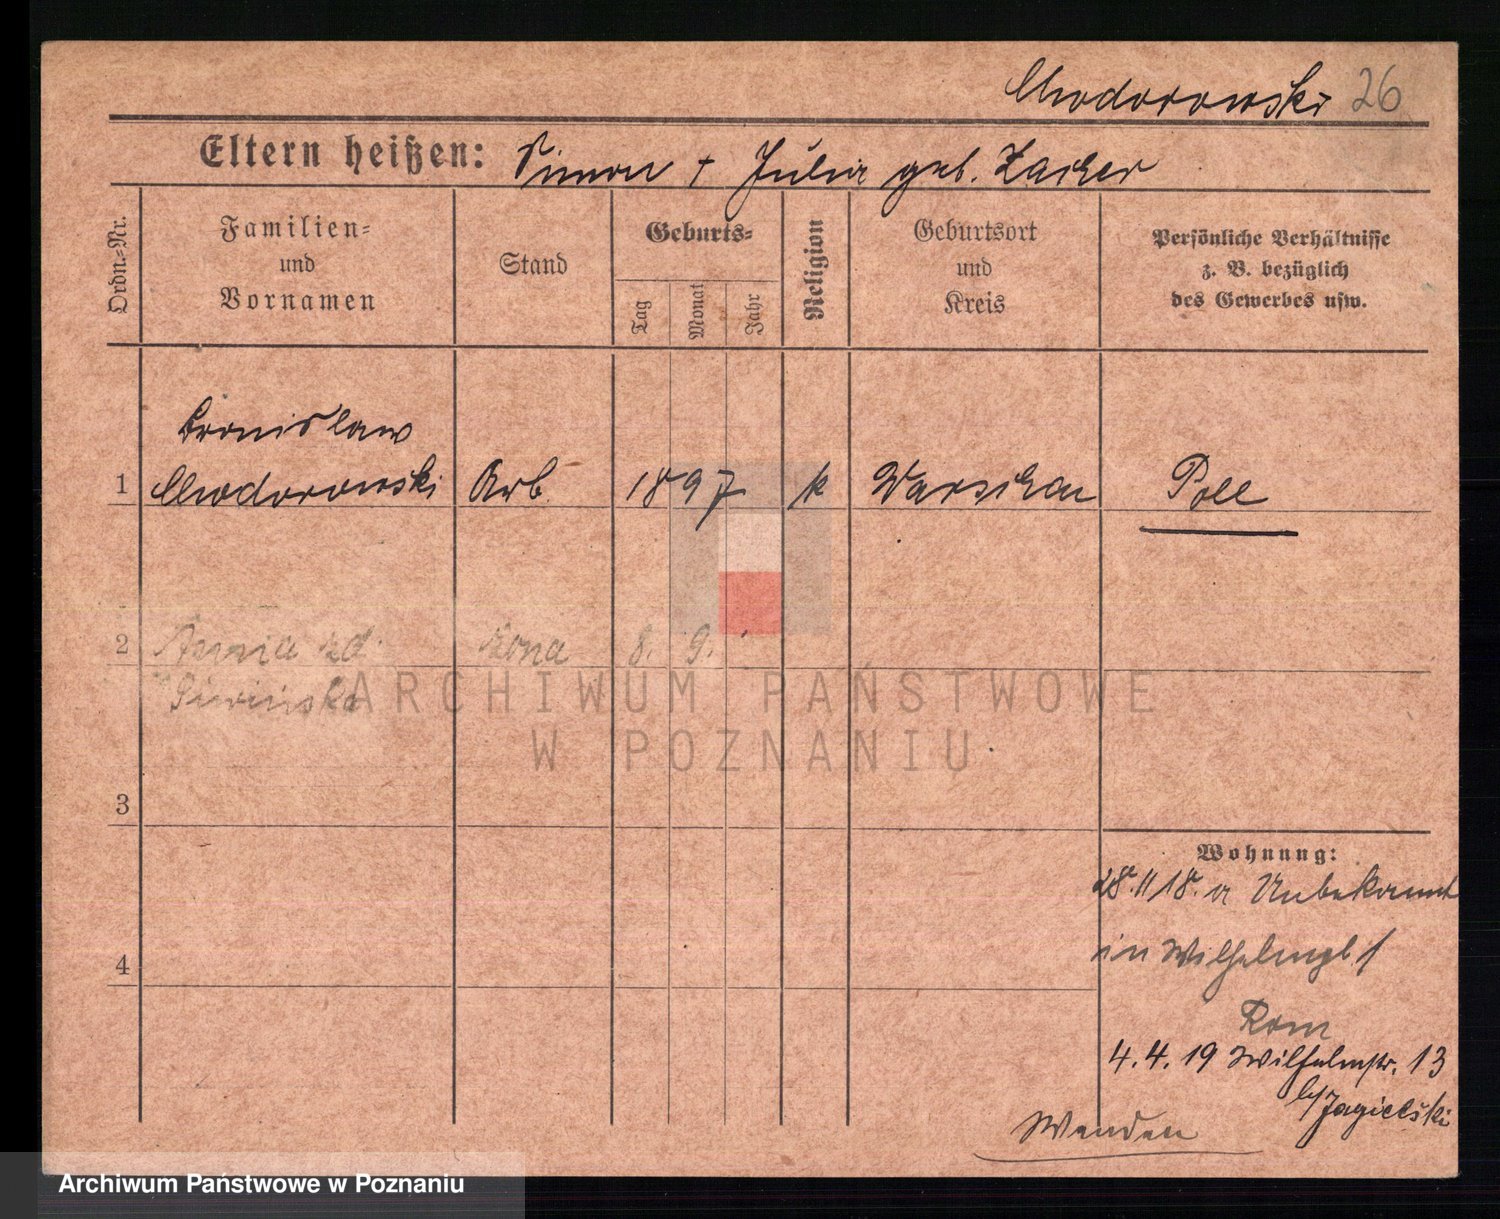 Chodorowski 26
Eltern heißen: Simon + Julia geb. Zacher
Ordn.=Nr.
Familien=
und
Vornamen
Stand
Geburts=
Tag
Monat
Jahr
Religion
Geburtsort
und
Kreis
Persönliche Verhältnisse
z. B. bezüglich
des Gewerbes usw.
Bronislaw
1 Chodorowski Arb. 1897 k Warschau Pole
2 żona 8. 9.
Siwińska
3
4
Wohnung:
28. 11 18. a Unbekannt
in Wilhelmpl 1
Rom
4. 4. 19 Wilhelmstr. 13
b/Jagielski
Wenden
ARCHIWUM PAŃSTWOWE
W POZNANIU
Archiwum Państwowe w Poznaniu